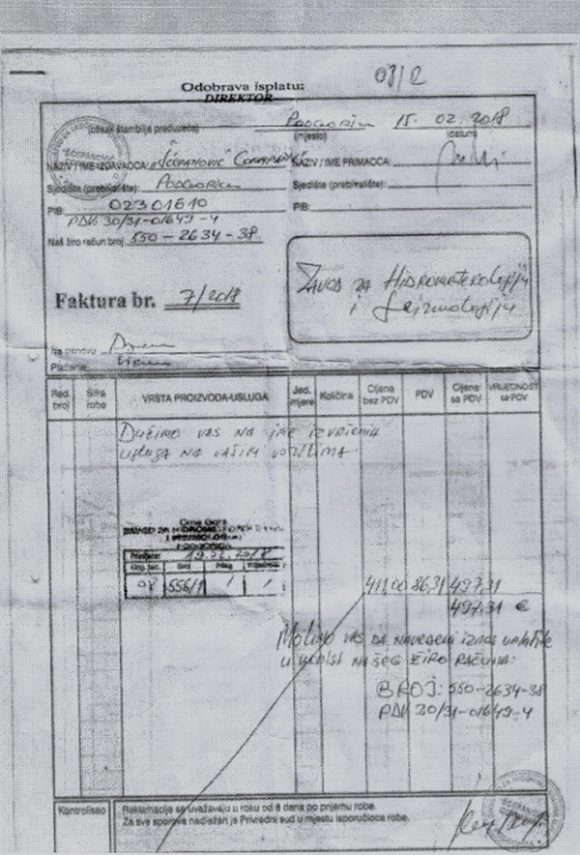 03/12
Odobrava isplatu:
DIREKTOR
Podgorica 15. 02. 2018
(otisak štambilja preduzeća) (mjesto) (datum)
NAZIV / IME IZDAVAOCA: NAZIV / IME PRIMAOCA:
Sjedište (prebivalište): Podgorica Sjedište (prebivalište):
PIB: 02301610 PIB:
PDV 30/31-01649-4
Naš žiro račun broj 550-2634-38
Zavod za Hidrometeorologiju
i Seizmologiju
Faktura br. 7/2018
Na osnovu
Plaćanje: Virman
Red. broj Šifra robe VRSTA PROIZVODA-USLUGA Jed. mjere Količina Cijena bez PDV PDV Cijena sa PDV VRIJEDNOST sa PDV
Dužimo vas na ime izvršenih
usluga na vašim vozilima
Crna Gora
Org. jed. Broj Prilog Vrijednost
08 556/1
411,00 86,31 497,31
497,31 €
Molimo vas da navedeni iznos uplatite
u korist našeg žiro računa:
BROJ: 550-2634-38
PDV 30/31-01649-4
Kontrolisao Reklamacije se uvažavaju u roku od 8 dana po prijemu robe.
Za sve sporove nadležan je Privredni sud u mjestu isporučioca robe.